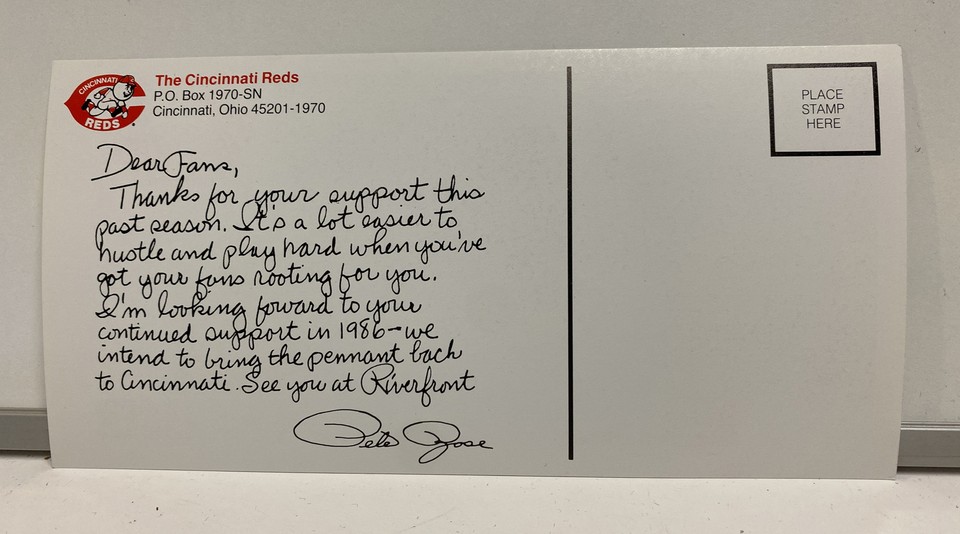 CINCINNATI
REDS
The Cincinnati Reds
P.O. Box 1970-SN
Cincinnati, Ohio 45201-1970
PLACE
STAMP
HERE
Dear Fans,
Thanks for your support this
past season. It's a lot easier to
hustle and play hard when you've
got your fans rooting for you.
I'm looking foward to your
continued support in 1986-we
intend to bring the pennant back
to Cincinnati. See you at Riverfront
Pete Rose